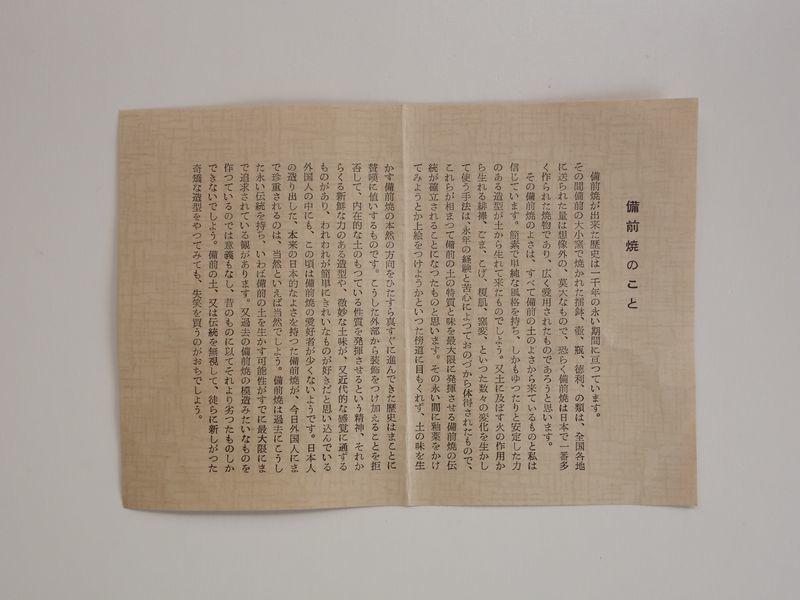 備前焼のこと
備前焼が出来た歴史は一千年の永い期間に亘つています。
その間備前の大小窯で焼かれた擂鉢、壷、瓶、徳利、の類は、全国各地
に送られた量は想像外の、莫大なもので、恐らく備前焼は日本で一番多
く作られた焼物であり、広く愛用されたものであろうと思います。
その備前焼のよさは、すべて備前の土のよさから来ているものと私は
信じています。簡素で単純な風格を持ち、しかもゆつたりと安定した力
のある造型が土から生れて来たものでしよう。又土に及ぼす火の作用か
ら生れる緋襷、ごま、こげ、榎肌、窯変、といつた数々の変化を生かし
て使う手法は、永年の経験と苦心によつておのづから体得されたもので、
これらが相まつて備前の土の特質と味を最大限に発揮させる備前焼の伝
統が確立されることになつたものと思います。その永い間に釉薬をかけ
てみようとか上絵をつけようかといつた傍道に目もくれず、土の味を生
かす備前焼の本然の方向をひたすら真すぐに進んできた歴史はまことに
賛頌に値いするものです。こうした外部から装飾をつけ加えることを拒
否して、内在的な土のもつている性質を発揮させるという精神、それか
らくる新鮮な力のある造型や、微妙な土味が、又近代的な感覚に通ずる
ものがあり、われわれが簡単にきれいなものが好きだと思い込んでいる
外国人の中にも、この頃は備前焼の愛好者が少くないようです。日本人
の造り出した、本来の日本的なよさを持つた備前焼が、今日外国人にま
で珍重されるのは、当然といえば当然でしよう。備前焼は過去にこうし
た永い伝統を持ち、いわば備前の土を生かす可能性がすでに最大限にま
で追求されている観があります。又過去の備前焼の模造みたいなものを
作つているのでは意義もなし、昔のものに以てそれより劣つたものしか
できないでしよう。備前の土、又は伝統を無視して、徒らに新しがつた
奇矯な造型をやつてみても、失笑を買うのがおちでしよう。